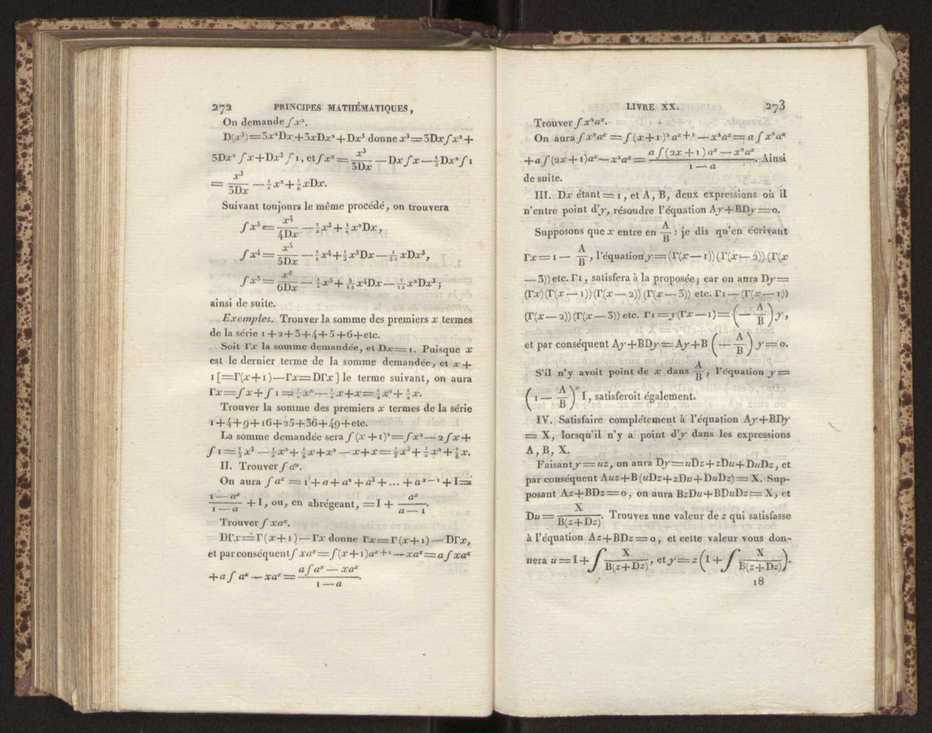 272 PRINCIPES MATHÉMATIQUES,
On demande ∫x².
D(x³)=3x²Dx+3xDx²+Dx³ donne x³=3Dx∫x²+
3Dx²∫x+Dx³∫1, et ∫x²= x³/3Dx —Dx∫x—⅓Dx²∫1
= x³/3Dx —½x²+⅙xDx.
Suivant toujours le même procédé, on trouvera
∫x³= x⁴/4Dx —½x³+¼x²Dx,
∫x⁴= x⁵/5Dx —½x⁴+⅓x³Dx—1/30 xDx³,
∫x⁵= x⁶/6Dx —½x⁵+5/12 x⁴Dx—1/12 x²Dx³;
ainsi de suite.
Exemples. Trouver la somme des premiers x termes
de la série 1+2+3+4+5+6+etc.
Soit Γx la somme demandée, et Dx=1. Puisque x
est le dernier terme de la somme demandée, et x+
1[=Γ(x+1)—Γx=DΓx] le terme suivant, on aura
Γx=∫x+∫1=½x²—½x+x=½x²+½x.
Trouver la somme des premiers x termes de la série
1+4+9+16+25+36+49+etc.
La somme demandée sera ∫(x+1)²=∫x²—2∫x+
∫1=⅓x³—½x²+⅙x+x²—x+x=⅓x³+½x²+⅙x.
II. Trouver ∫aˣ.
On aura ∫aˣ=1+a+a²+a³+...+aˣ⁻¹+I=
(1—aˣ)/(1—a) +I, ou, en abrégeant, =I+ aˣ/(a—1).
Trouver ∫xaˣ.
DΓx=Γ(x+1)—Γx donne Γx=Γ(x+1)—DΓx,
et par conséquent ∫xaˣ=∫(x+1)aˣ⁺¹—xaˣ=a∫xaˣ
+a∫aˣ—xaˣ= (a∫aˣ—xaˣ)/(1—a).
LIVRE XX. 273
Trouver ∫x²aˣ.
On aura ∫x²aˣ=∫(x+1)²aˣ⁺¹—x²aˣ=a∫x²aˣ
+a∫(2x+1)aˣ—x²aˣ= (a∫(2x+1)aˣ—x²aˣ)/(1—a). Ainsi
de suite.
III. Dx étant=1, et A, B, deux expressions où il
n'entre point d'y, résoudre l'équation Ay+BDy=0.
Supposons que x entre en A/B; je dis qu'en écrivant
Γx=1— A/B, l'équation y=(Γ(x—1))(Γ(x—2))(Γ(x
—3)) etc. Γ1, satisfera à la proposée; car on aura Dy=
(Γx)(Γ(x—1))(Γ(x—2))(Γ(x—3)) etc. Γ1—(Γ(x—1))
(Γ(x—2))(Γ(x—3)) etc. Γ1=y(Γx—1)=(—A/B)y,
et par conséquent Ay+BDy=Ay+B(—A/B)y=0.
S'il n'y avoit point de x dans A/B, l'équation y=
(1—A/B)ˣI, satisferoit également.
IV. Satisfaire complètement à l'équation Ay+BDy
=X, lorsqu'il n'y a point d'y dans les expressions
A, B, X.
Faisant y=uz, on aura Dy=uDz+zDu+DuDz, et
par conséquent Auz+B(uDz+zDu+DuDz)=X. Sup-
posant Az+BDz=0, on aura BzDu+BDuDz=X, et
Du= X/B(z+Dz). Trouvez une valeur de z qui satisfasse
à l'équation Az+BDz=0, et cette valeur vous don-
nera u=I+∫ X/B(z+Dz), et y=z(I+∫ X/B(z+Dz)).
18